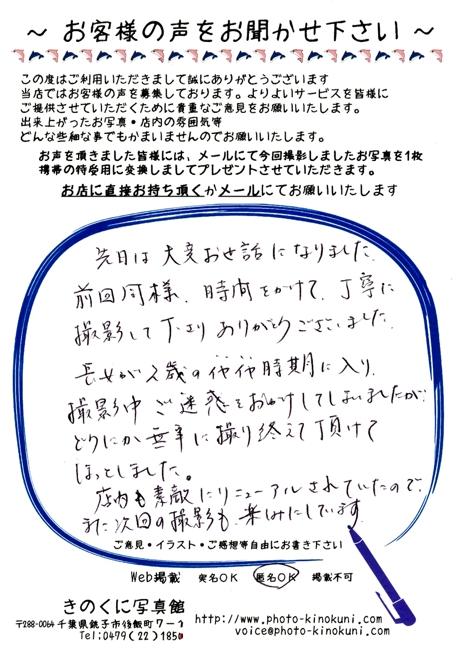 ～ お客様の声をお聞かせ下さい ～
この度はご利用いただきまして誠にありがとうございます
当店ではお客様の声を募集しております。よりよいサービスを皆様に
ご提供させていただくために貴重なご意見をお願いいたします。
出来上がったお写真・店内の雰囲気等
どんな些細な事でもかまいませんのでお願いいたします。
お声を頂きました皆様には、メールにて今回撮影しましたお写真を1枚
携帯の待受用に変換しましてプレゼントさせていただきます。
お店に直接お持ち頂くかメールにてお願いいたします
先日は大変お世話になりました。
前回同様、時間をかけて、丁寧に
撮影して下さり ありがとうございました。
長女が2歳のイヤイヤ時期に入り、
撮影中 ご迷惑をおかけしてしまいましたが、
どうにか無事に撮り終えて頂けて
ほっとしました。
店内も素敵にリニューアルされていたので
また次回の撮影も楽しみにしています。
ご意見・イラスト・ご感想等自由にお書き下さい
Web掲載 実名OK 匿名OK 掲載不可
きのくに写真館
〒288-0064 千葉県銚子市後飯町7-1
Tel:0479(22)1850
http://www.photo-kinokuni.com/
voice@photo-kinokuni.com